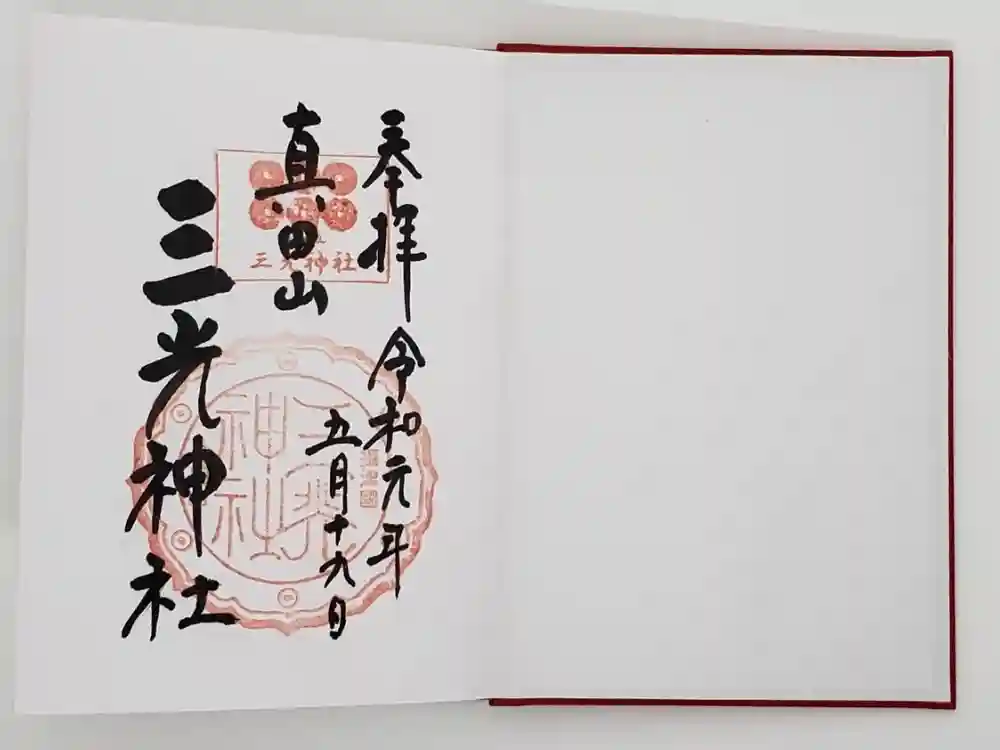 奉拝 令和元年
五月十九日
真田山
三光神社
三光神社
三光神社